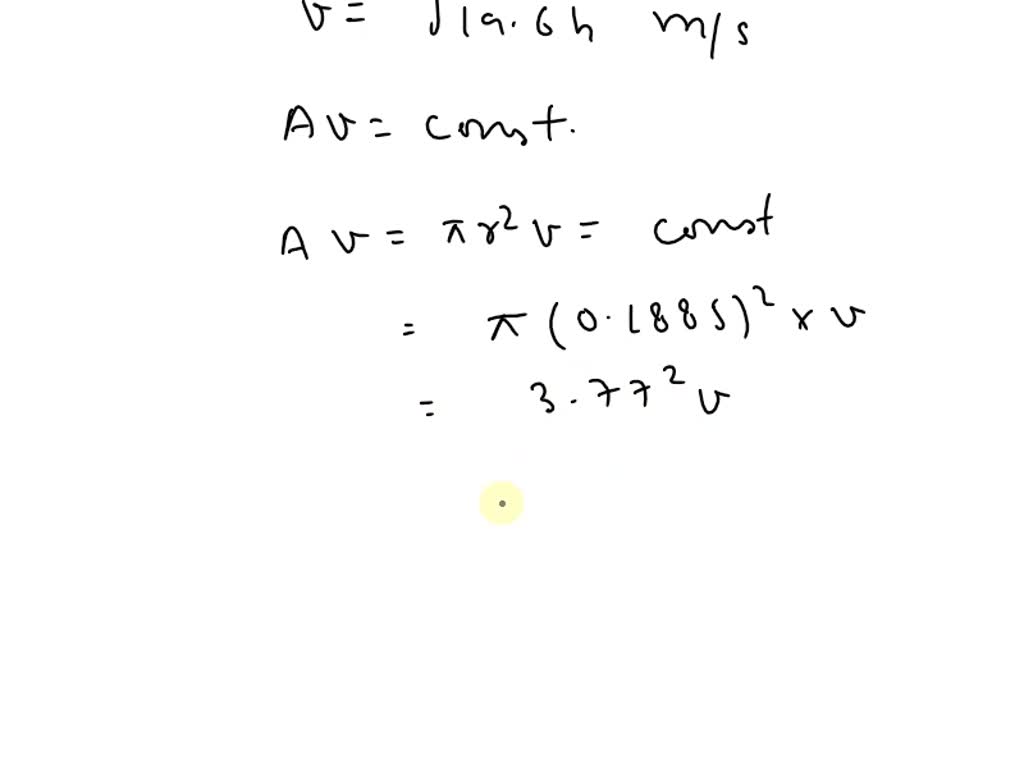 v = √19.6h m/s
Av = const.
Av = πr² v = const
= π (0.1885)² × v
= 3.77² v